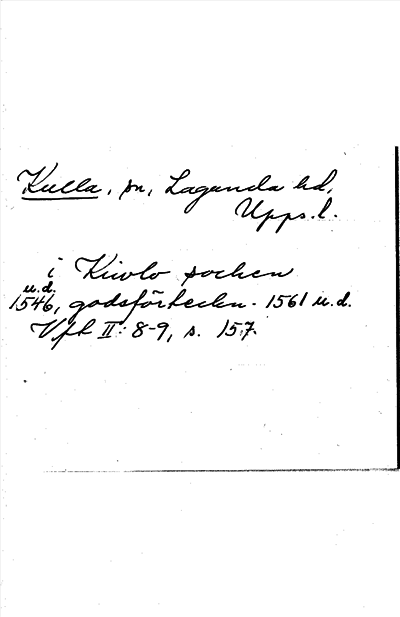 Kulla, sn, Lagunda hd,
Upps. l.
i Kiwlo sochen
u.d.
1546, godsförteckn. 1561 u.d.
Vfk II: 8-9, s. 157.